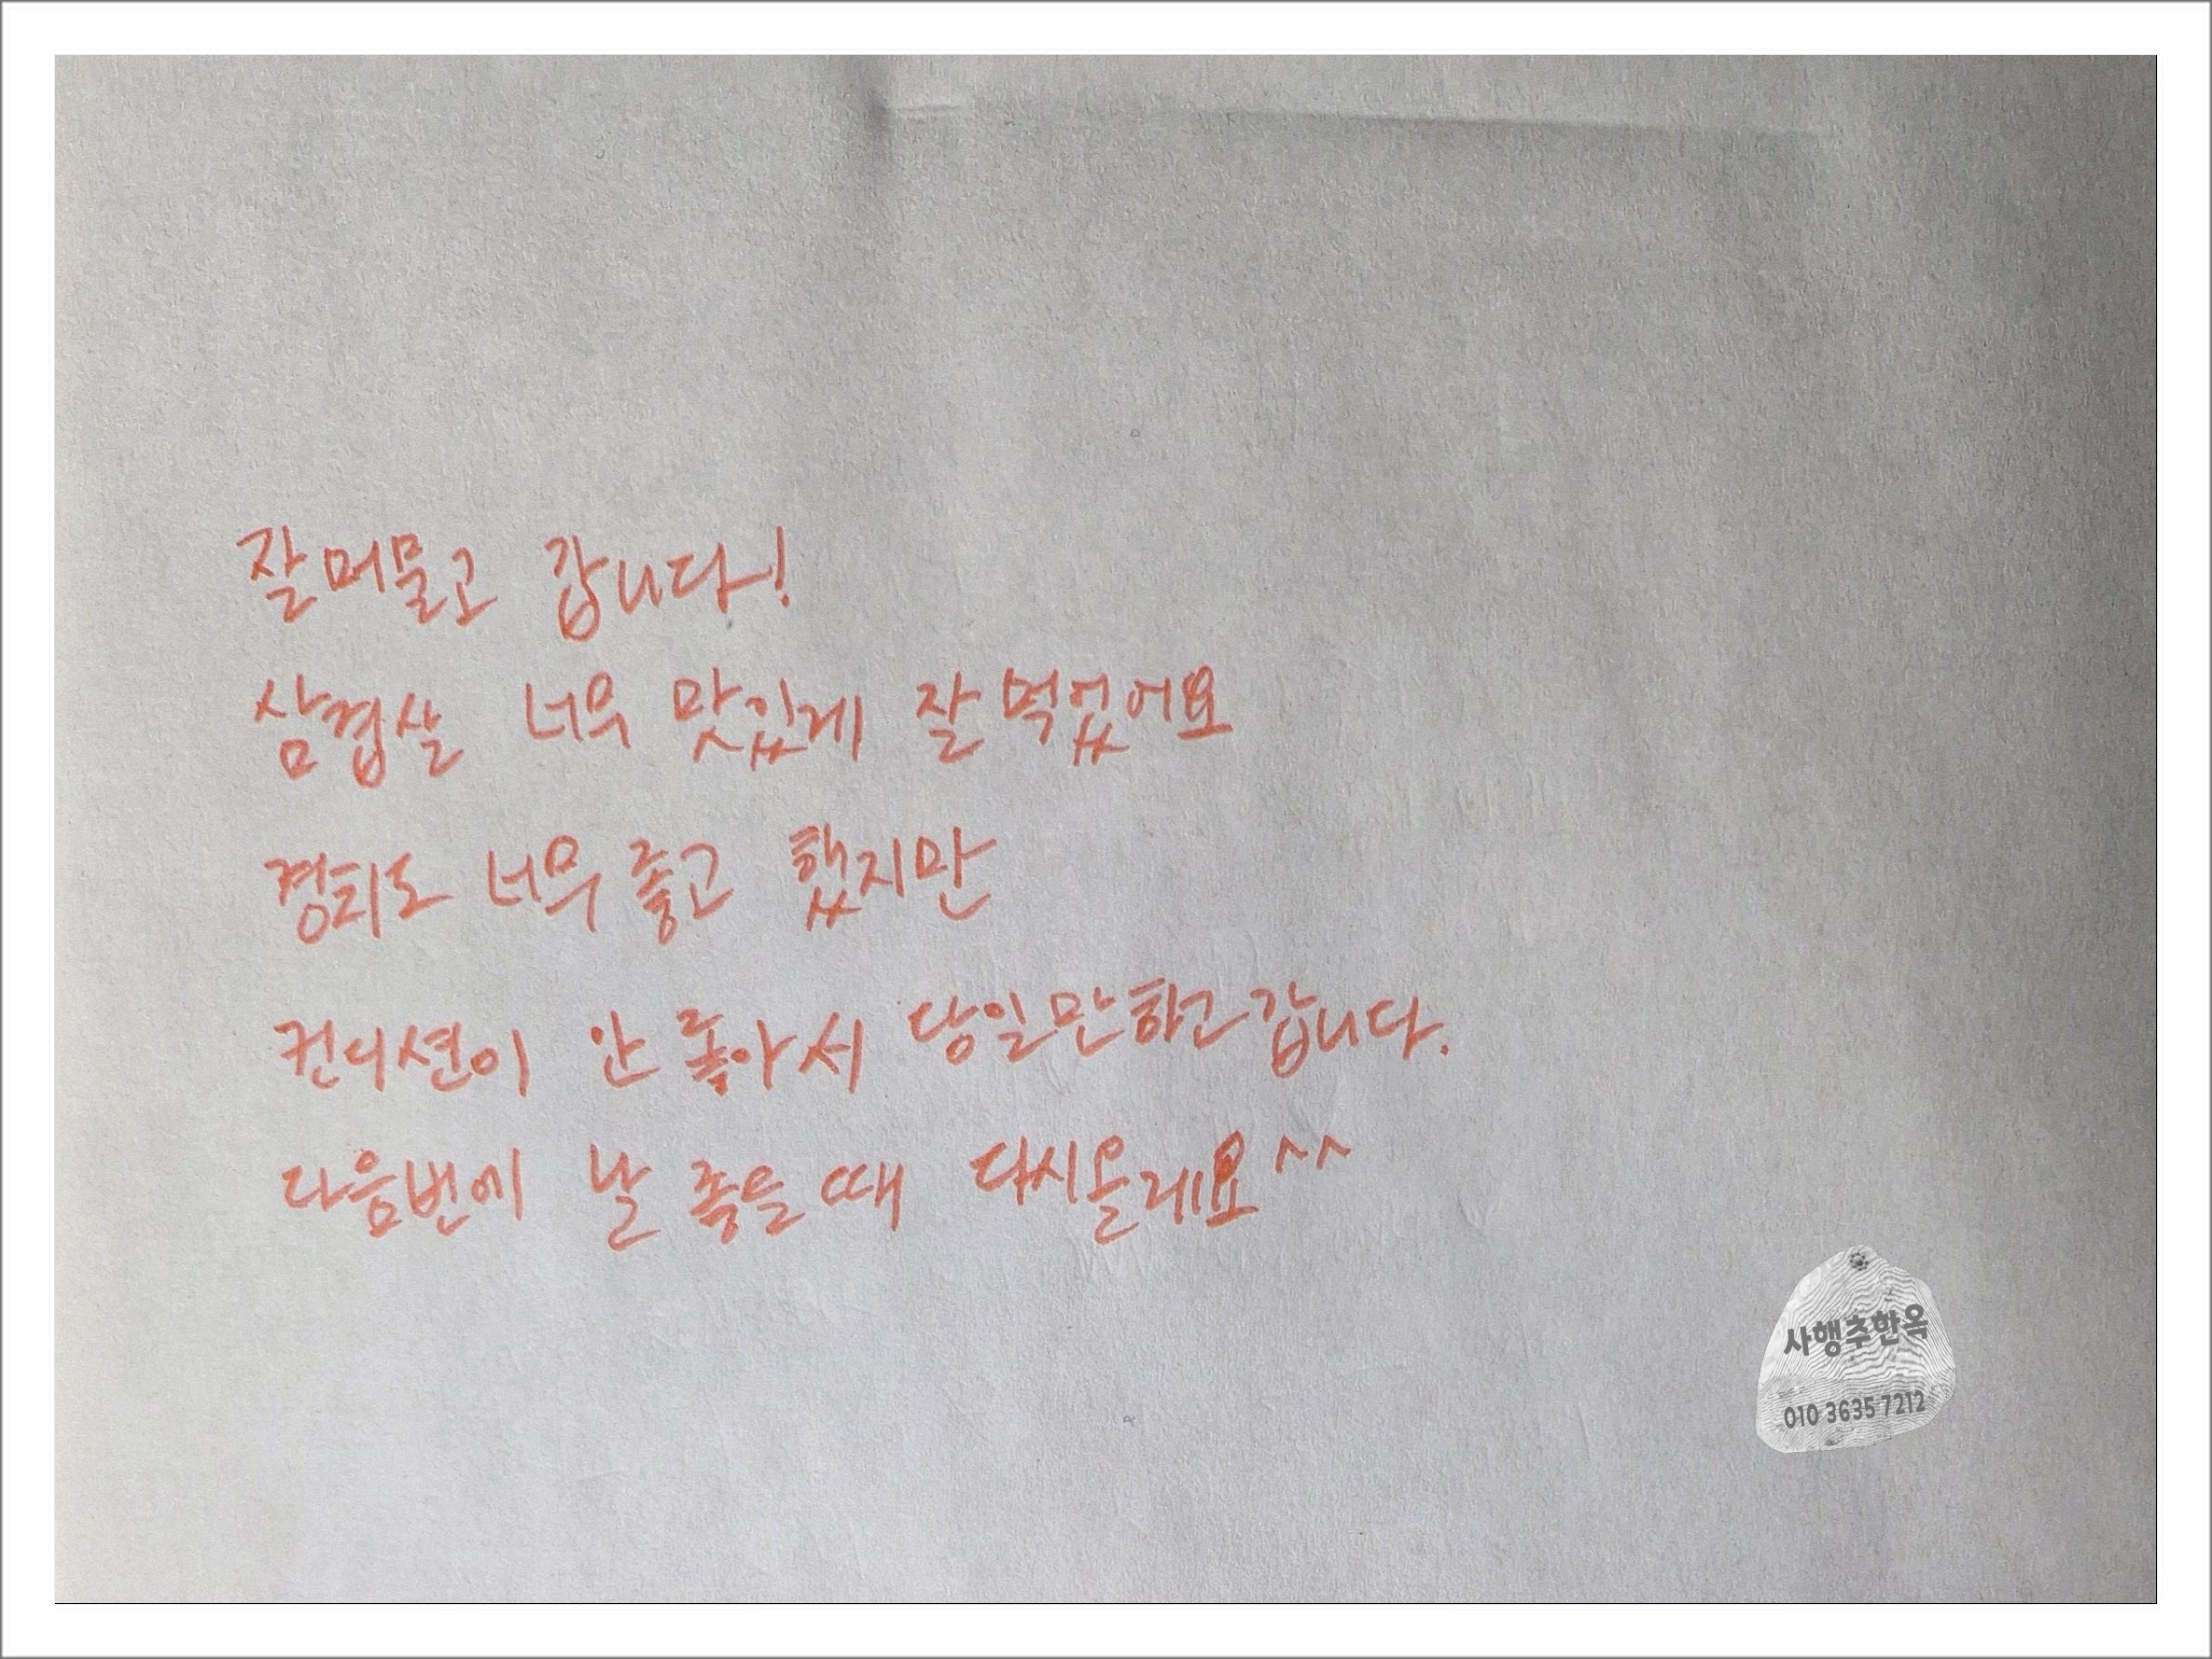 잘 머물고 갑니다!
삼겹살 너무 맛있게 잘 먹었어요
경치도 너무 좋고 했지만
컨디션이 안 좋아서 당일만하고 갑니다.
다음번에 날 좋을 때 다시올게요^^
사행추한옥
010 3635 7212